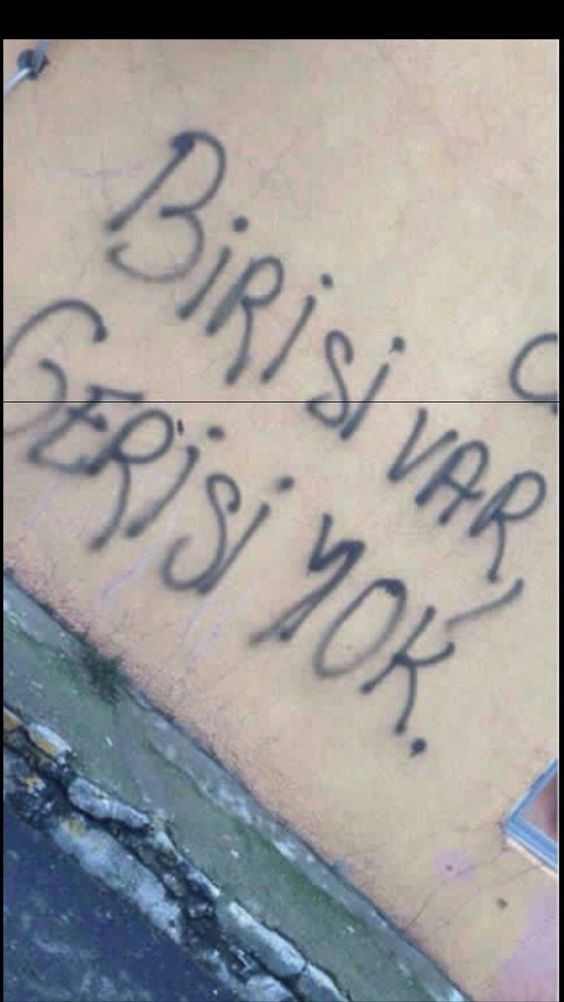 BİRİSİ VAR,
GERİSİ YOK.